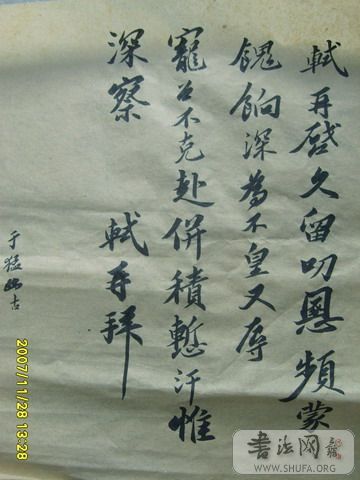 軾再啓久留叨恩頻蒙
餽餉深為不皇又辱
寵召不克赴併積慙汗惟
深察 軾再拜
于猛 古
2007/11/28 13:28
書法网
WWW.SHUFA.ORG